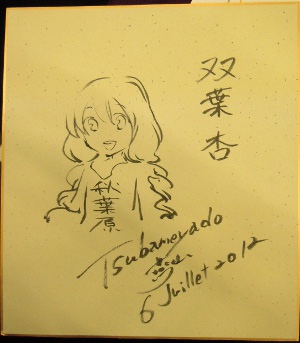 双葉杏
秋葉原
Tsubamerado
6 Juillet 2012